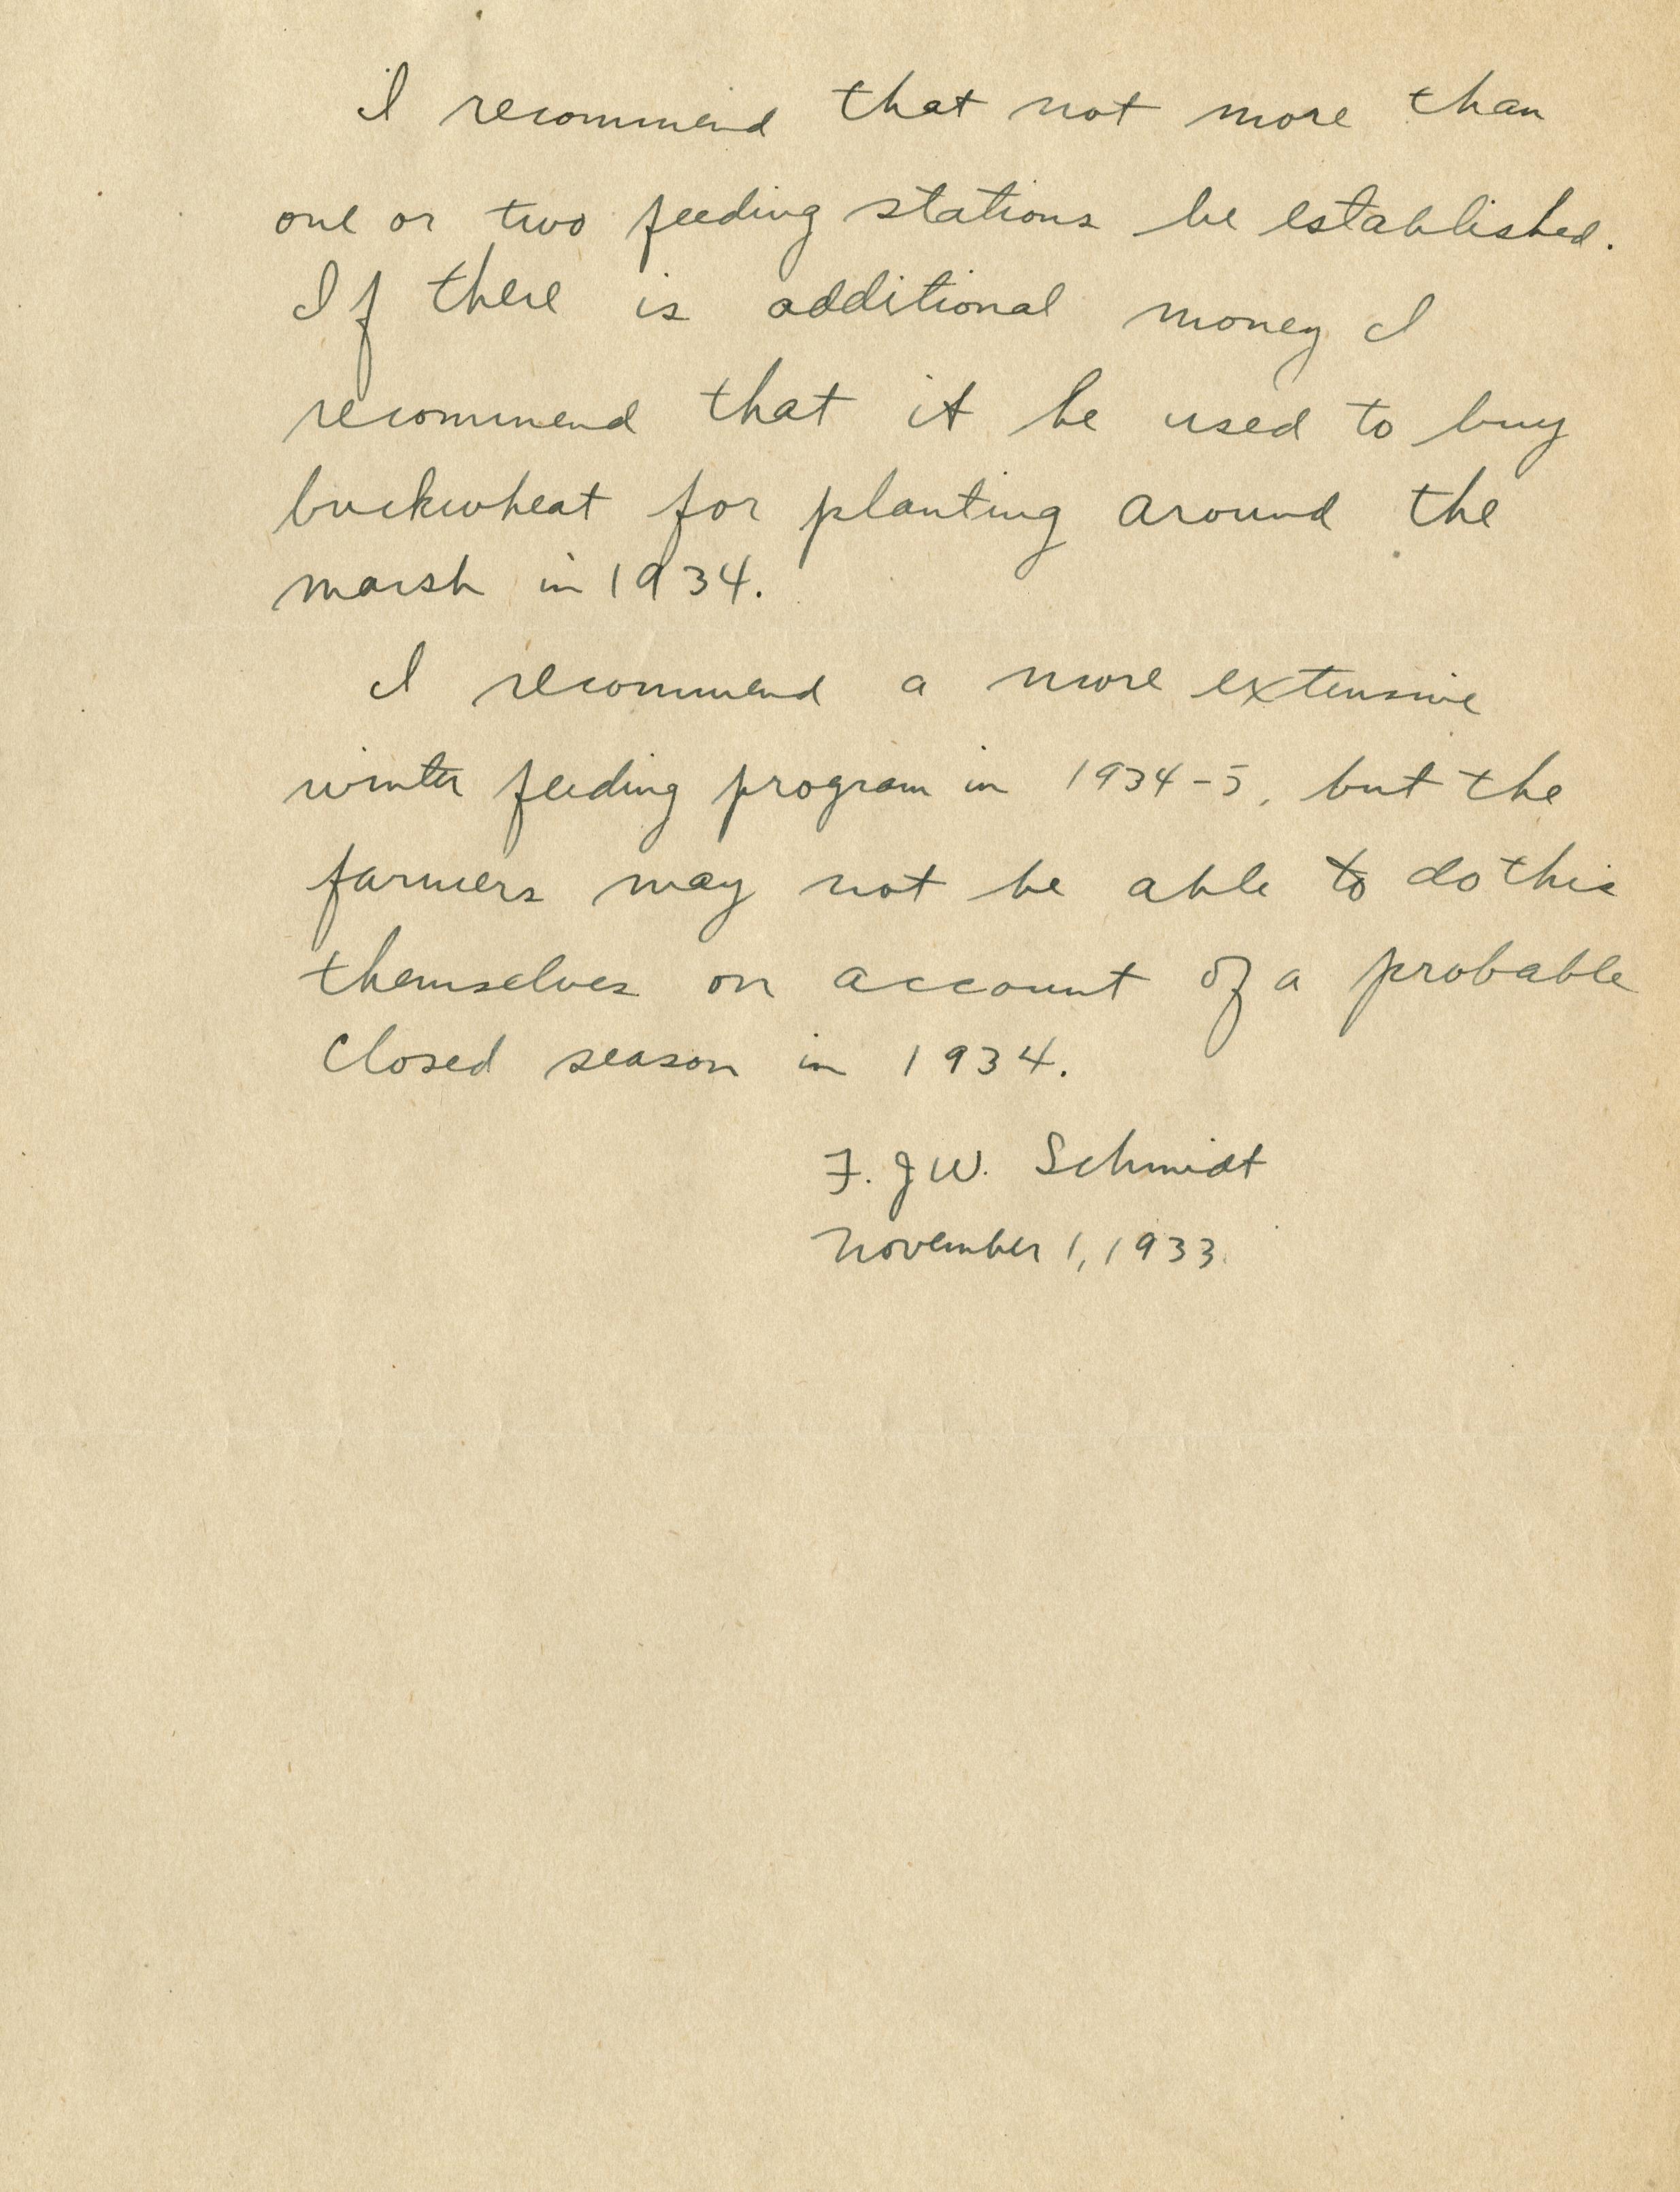 I recommend that not more than
one or two feeding stations be established.
If there is additional money I
recommend that it be used to buy
buckwheat for planting around the
marsh in 1934.
I recommend a more extensive
winter feeding program in 1934-5, but the
farmers may not be able to do this
themselves on account of a probable
closed season in 1934.
F. J W. Schmidt
November 1, 1933.